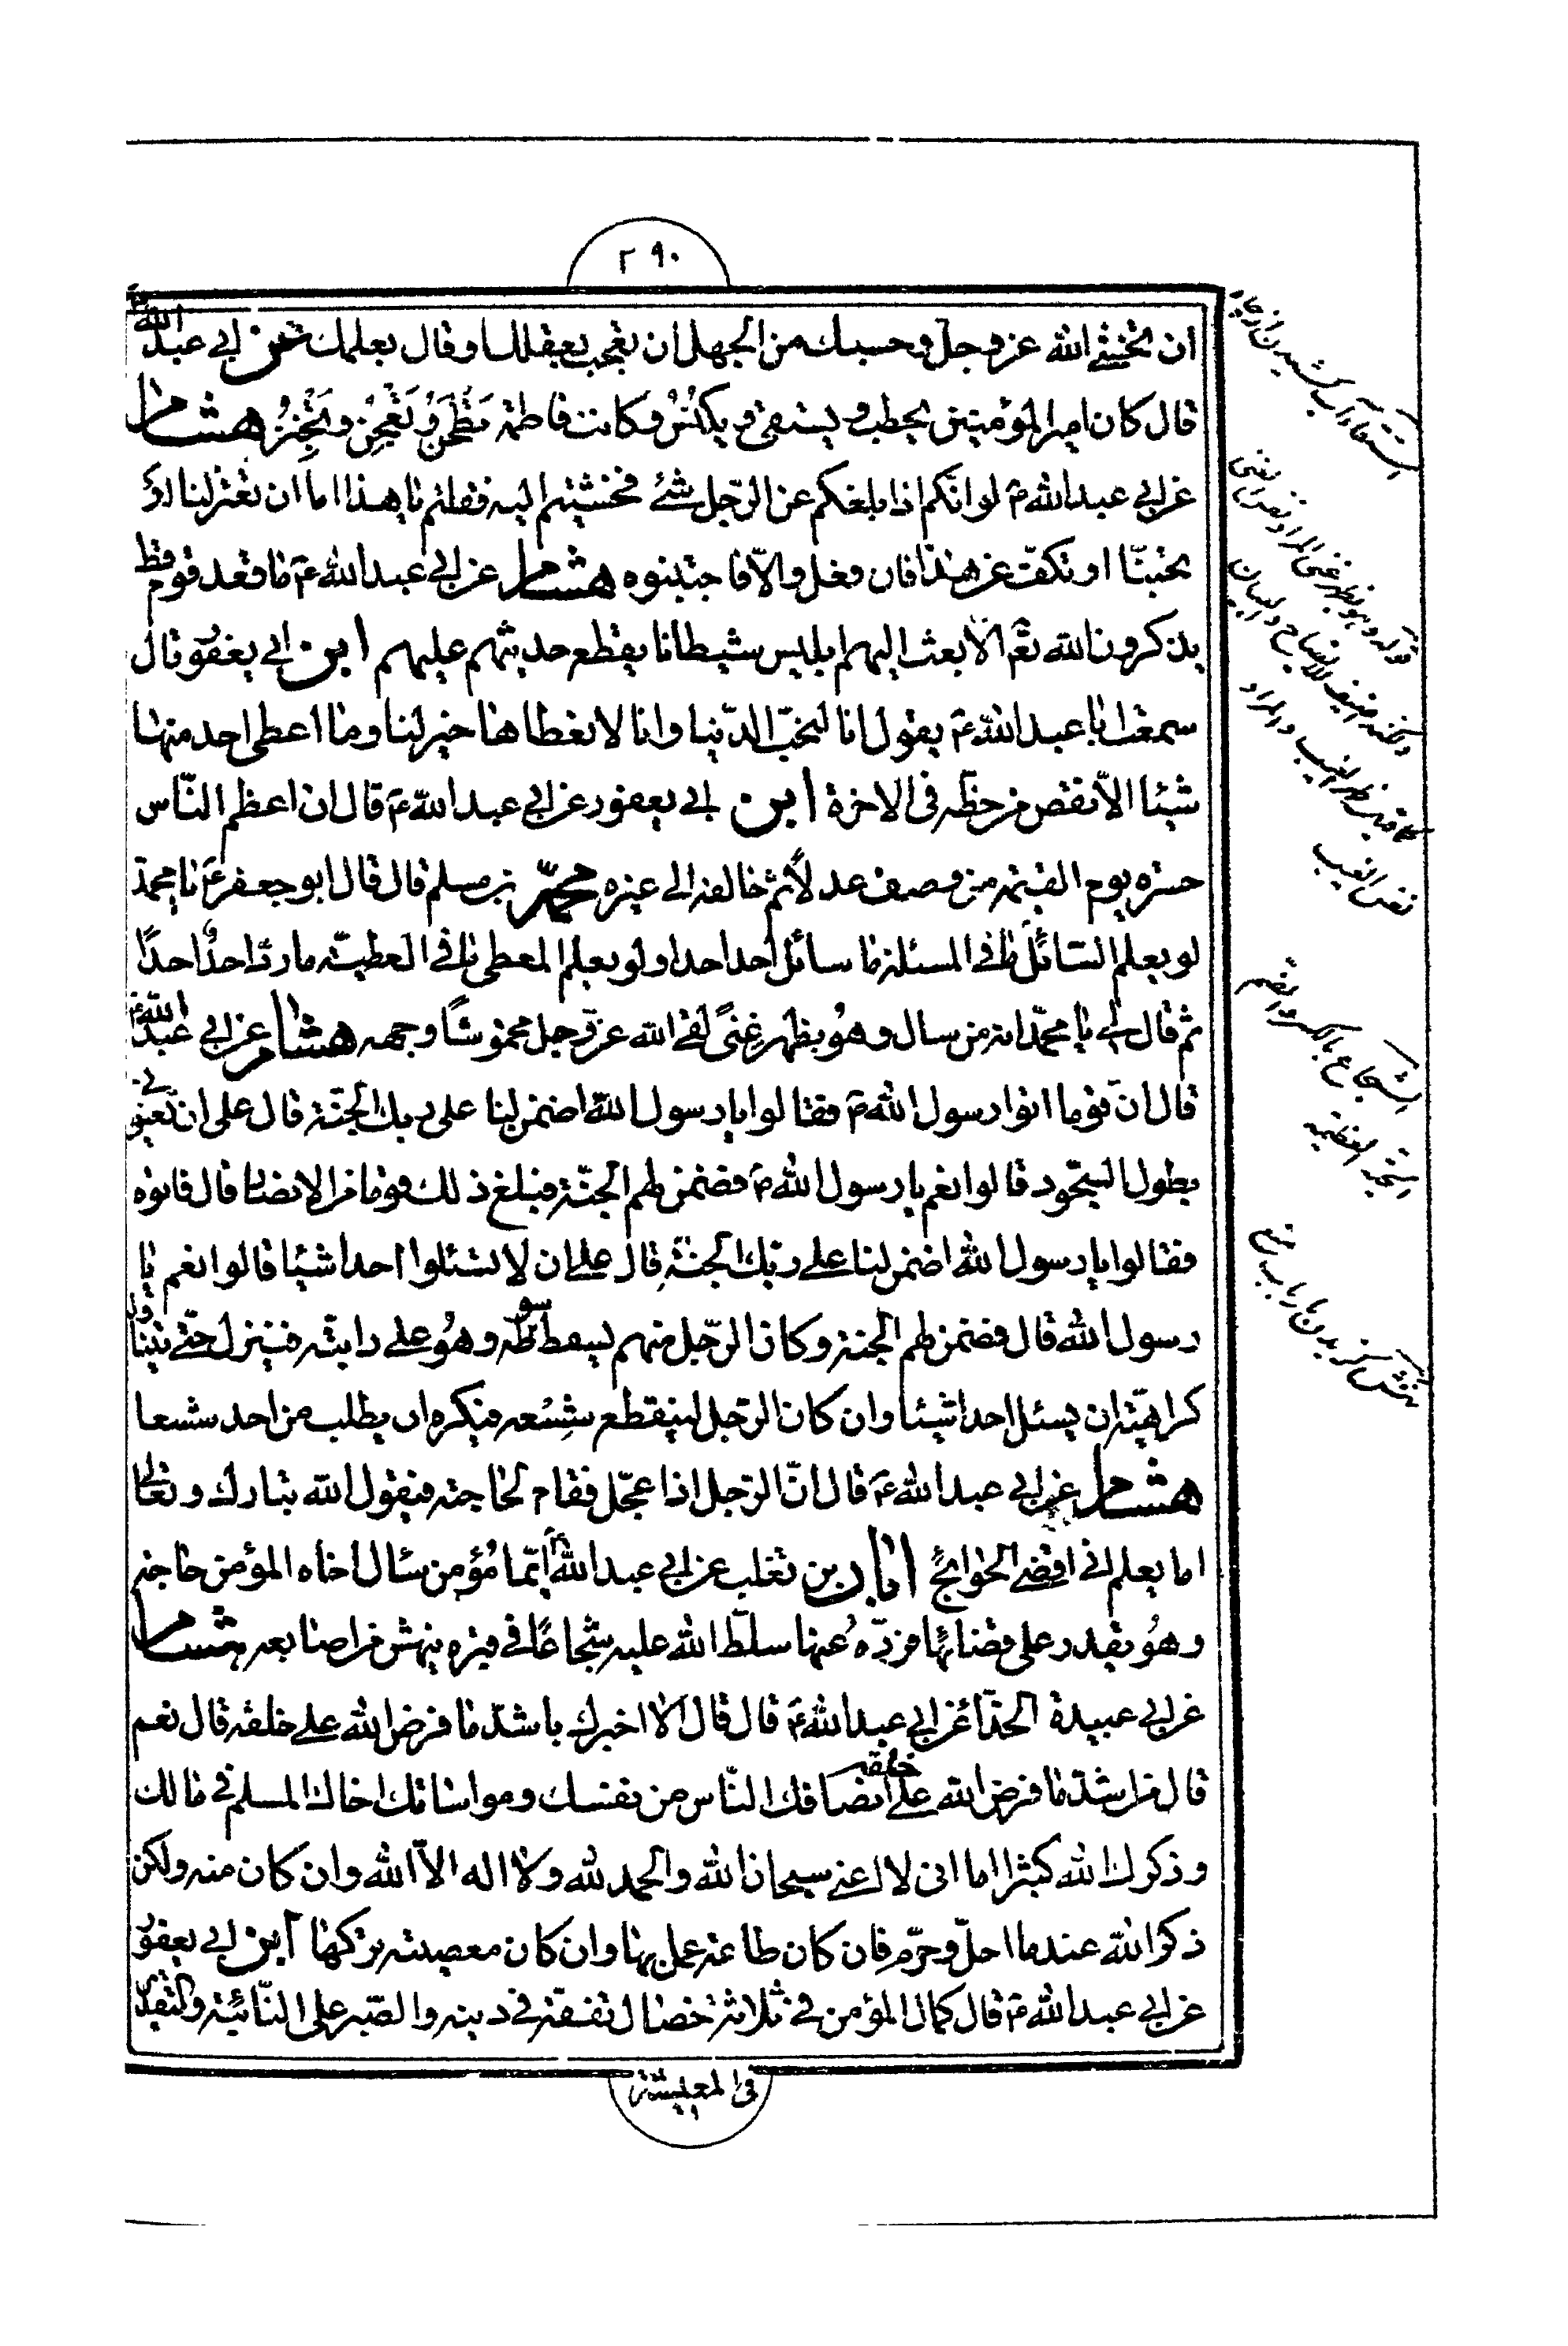 ۲۹۰
ان تخشی الله عز و جل و حسبك من الجهل ان تعجب بعقلك او قال بعلمك عن ابی عبد الله ع
قال كان امیر المؤمنین یحطب و یستقی و یكنس و كانت فاطمة تطحن و تعجن و تخبز هشام
عن ابی عبد الله ع لو انكم اذا بلغكم عن الرجل شئ فخشیتم الیه فقلتم یا هذا اما ان تعتزلنا او
تجتنبنا او تكف عن هذا فان فعل والا فاجتنبوه هشام عن ابی عبد الله ع ما قعد قوم قط
یذكرون الله تعم الا بعث الیهم ابلیس شیطانا یقطع حدیثهم علیهم ابن ابی یعفور قال
سمعت ابا عبد الله ع یقول انا لنحب الدنیا و انا لا نعطاها خیر لنا و ما اعطی احد منها
شیئا الا نقص من حظه فی الاخرة ابن ابی یعفور عن ابی عبد الله ع قال ان اعظم الناس
حسرة یوم القیمة من وصف عدلا ثم خالفه الی غیره محمد بن مسلم قال قال ابو جعفر ع یا محمد
لو یعلم السائل ما فی المسئلة ما سائل احد احدا و لو یعلم المعطی ما فی العطیة ما رد احد احدا
ثم قال لی یا محمد انه من سال و هو بظهر غنی لقی الله عز و جل مخموشا وجهه هشام عن ابی عبد الله ع
قال ان قوما اتوا رسول الله ص فقالوا یا رسول الله اضمن لنا علی ربك الجنة قال علی ان تعینونی
بطول السجود قالوا نعم یا رسول الله ص فضمن لهم الجنة فبلغ ذلك قوما من الانصار قال فاتوه
فقالوا یا رسول الله اضمن لنا علی ربك الجنة قال علی ان لا تسئلوا احدا شیئا قالوا نعم یا
رسول الله قال فضمن لهم الجنة و كان الرجل منهم یسقط سوطه و هو علی دابته فینزل حتی یتناوله
كراهیة ان یسئل احدا شیئا و ان كان الرجل لینقطع شسعه فیكره ان یطلب من احد شسعا
هشام عن ابی عبد الله ع قال ان الرجل اذا عجل فقام لحاجته فیقول الله تبارك و تعالی
اما یعلم انی اقضی الحوائج ابان بن تغلب عن ابی عبد الله ع ایما مؤمن سئال اخاه المؤمن حاجة
و هو یقدر علی قضائها فرده عنها سلط الله علیه شجاعا فی قبره ینهش من اصابعه هشام
عن ابی عبیدة الحذا عن ابی عبد الله ع قال قال الا اخبرك باشد ما فرض الله علی خلقه قال نعم
قال من اشد ما فرض الله علی خلقه انصافك الناس من نفسك و مواساتك اخاك المسلم فی مالك
و ذكرك الله كثیرا اما انی لا اعنی سبحان الله و الحمد لله و لا اله الا الله و ان كان منه و لكن
ذكر الله عند ما احل و حرم فان كان طاعة عمل بها و ان كان معصیة تركها ابن ابی یعفور
عن ابی عبد الله ع قال كمال المؤمن فی ثلاثة خصال تفقه فی دینه و الصبر علی النائبة و التقدیر
فی المعیشة
الشجاع بالكسر و الضم
الحیة العظیمة